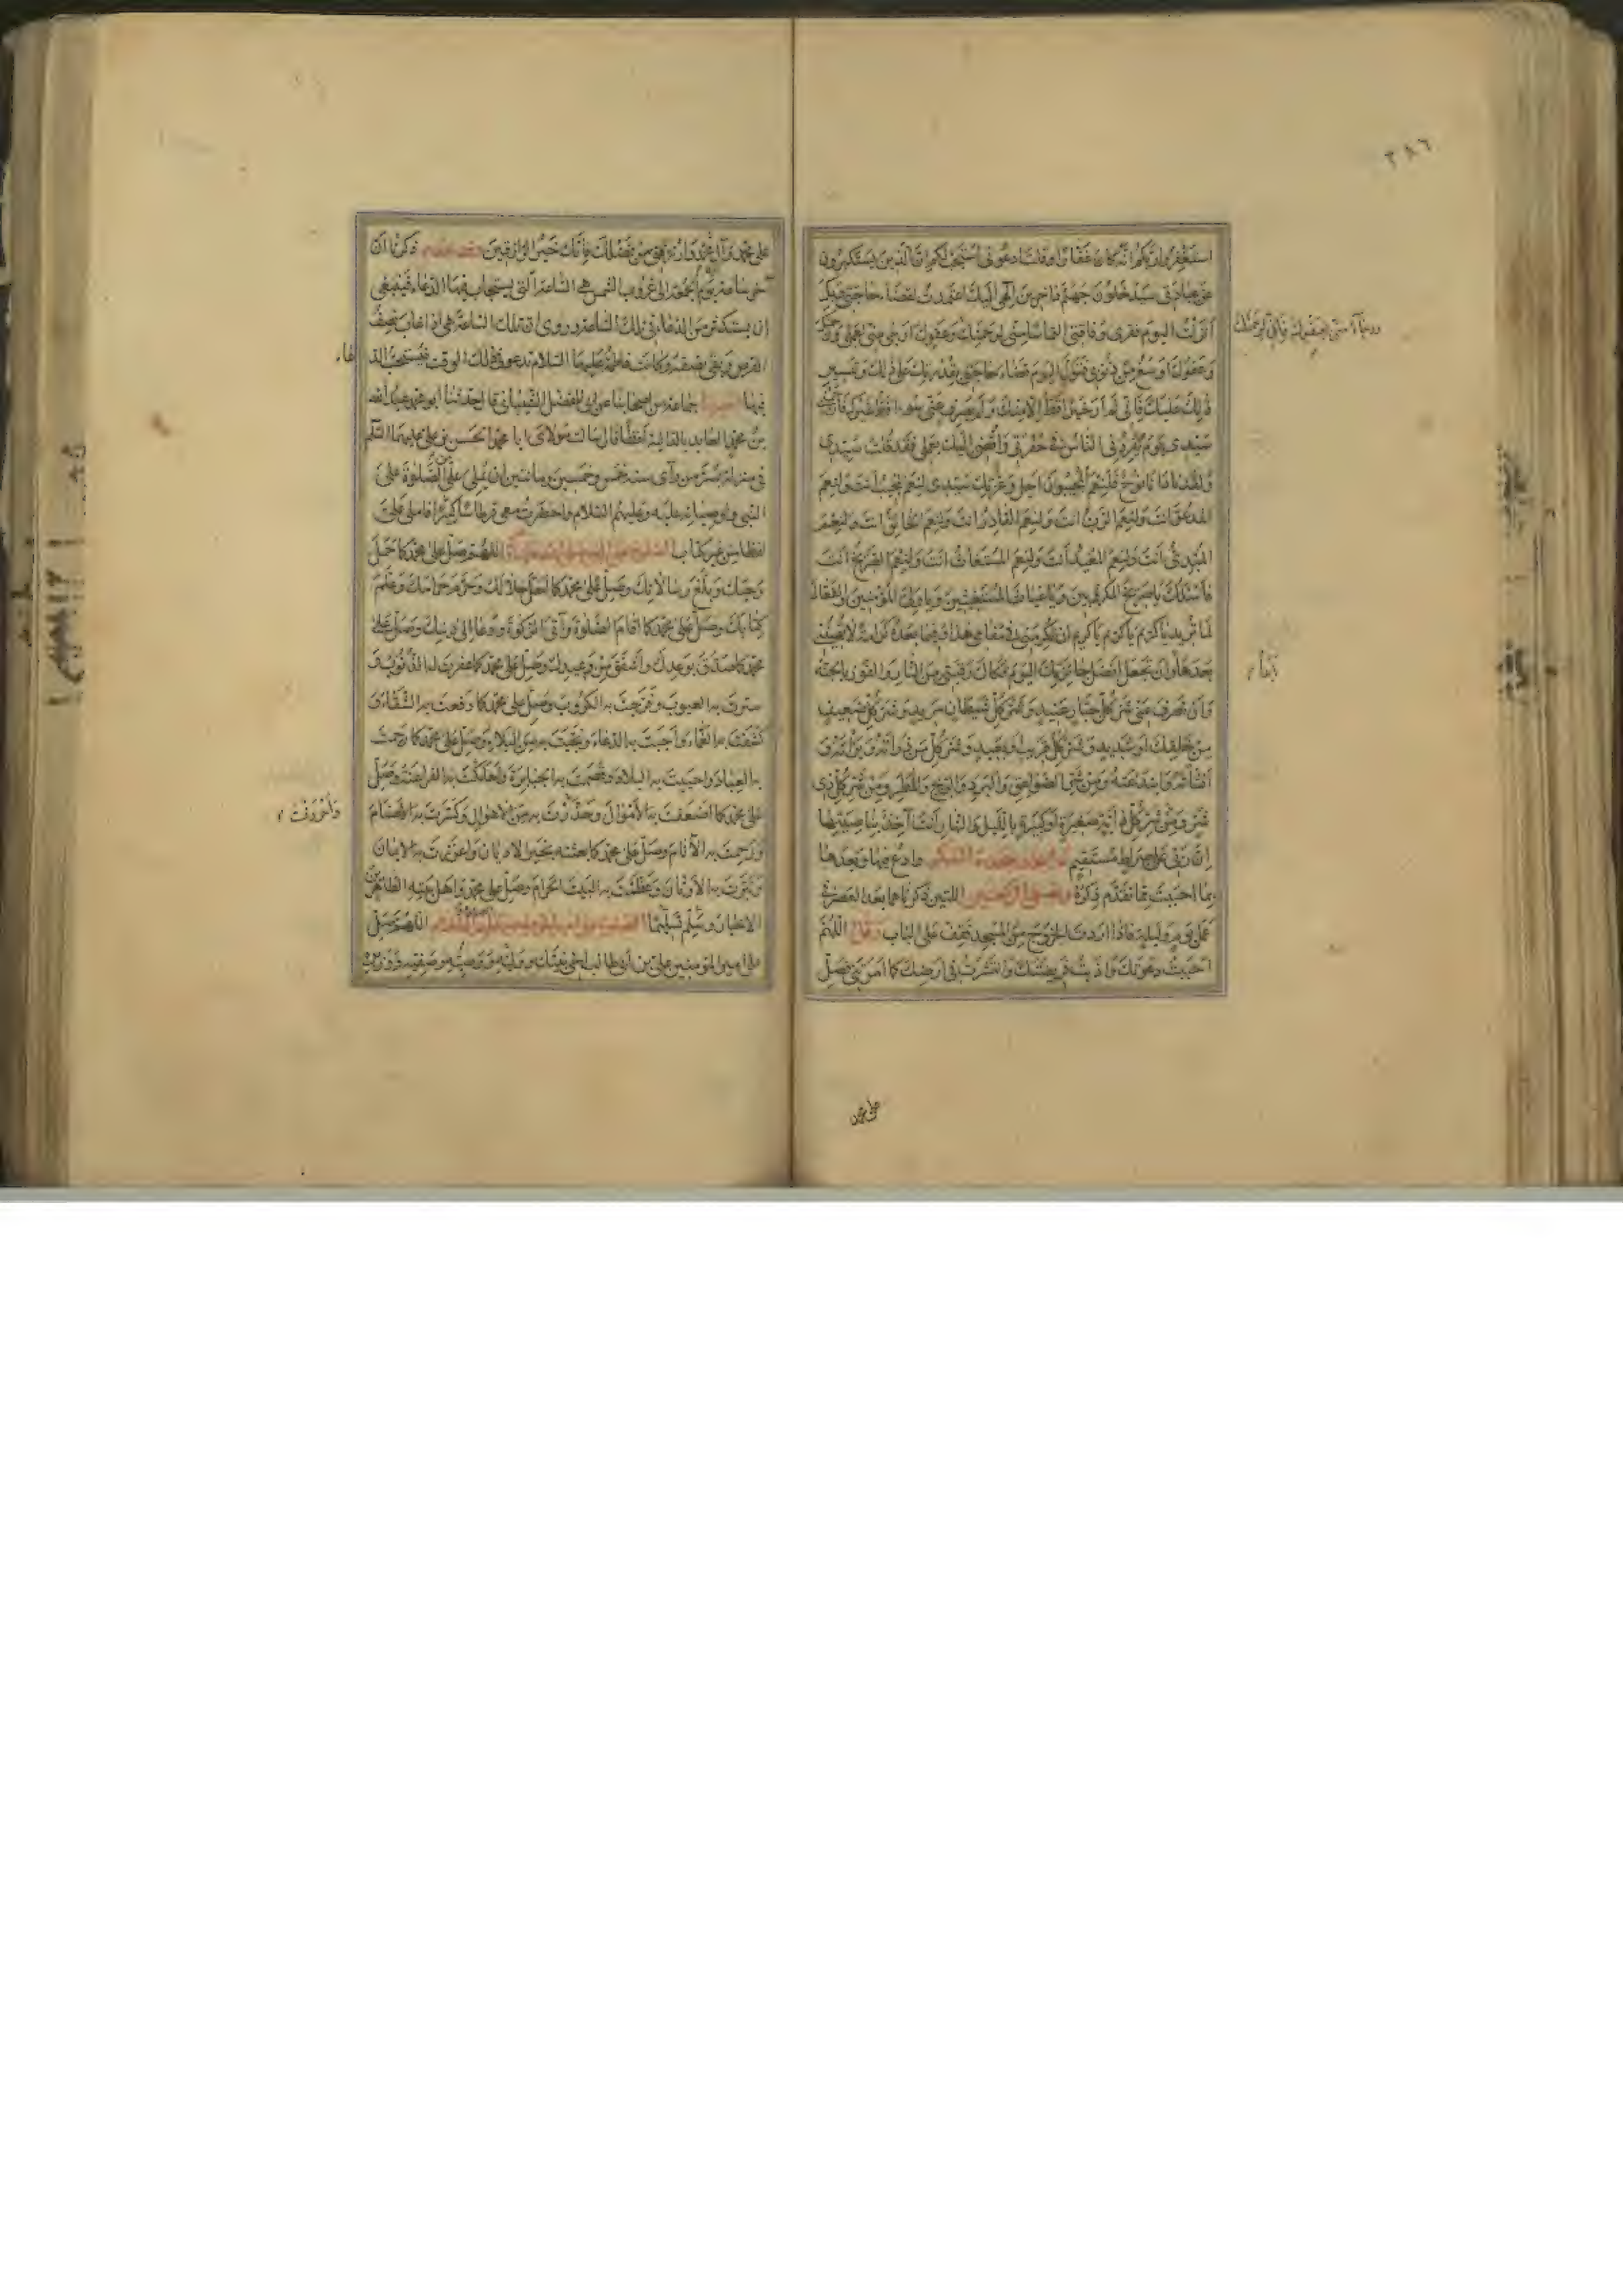 ٣٨٦
استغفروا ربكم انه كان غفارا وقلت ادعوني استجب لكم ان الذين يستكبرون
عن عبادتي سيدخلون جهنم داخرين الهي اليك اعتمدت لقضاء حاجتي وبك
انزلت اليوم فقري وفاقتي التماسا مني لرحمتك وعفوك
وعفوك اوسع من ذنوبي فتول اليوم قضاء حاجتي بقدرتك على ذلك وتيسير
ذلك عليك فاني لم ار خيرا قط الا منك ولم يصرف عني سوءا قط غيرك
سيدي يوم يفردني الناس في حفرتي وافضي اليك بعملي فقد قلت سيدي
ولقد نادانا نوح فلنعم المجيبون اجل وعزتك سيدي لنعم المجيب انت ولنعم
المدعو انت ولنعم الرب انت ولنعم القادر انت ولنعم الخالق انت ولنعم
المبدئ انت ولنعم المعيد انت ولنعم المستغاث انت ولنعم الصريخ انت
فاسئلك يا صريخ المكروبين ويا غياث المستغيثين ويا ولي المؤمنين والفعال
لما تريد يا كريم يا كريم يا كريم ان تكرمني في مقامي هذا وفيما بعده كرامة لا تهينني
بعدها وان تجعل افضل جائزتك اليوم فكاك رقبتي من النار والفوز بالجنة
وان تصرف عني شر كل جبار عنيد وشر كل شيطان مريد وشر كل ضعيف
من خلقك او شديد وشر كل قريب او بعيد وشر كل من ذرأته وبرأته و
انشأته وابتدعته ومن شر الصواعق والبرد والريح والمطر ومن شر كل ذي
شر ومن شر كل دابة صغيرة او كبيرة بالليل والنهار انت آخذ بناصيتها
ان ربي على صراط مستقيم ثم اسجد سجدة الشكر وادع فيها وبعدها
بما احببت مما تقدم ذكره اللتين ذكرناهما بعد العصر في
عمل يوم وليلة فاذا اردت الخروج من المسجد فقف على الباب وقل اللهم
اجبت دعوتك واديت فريضتك وانتشرت في ارضك كما امرتني فصل
على محمد وآل محمد وارزقني من فضلك فانك خير الرازقين ذكرنا ان
آخر ساعة يوم الجمعة الى غروب الشمس هي الساعة التي يستجاب فيها الدعاء فينبغي
ان يستكثر من الدعاء في تلك الساعة وروى ان تلك الساعة هي اذا غاب نصف
القرص وبقي نصفه وكانت فاطمة عليها السلام تدعو في ذلك الوقت فيستحب الد
عاء
فيها اخبرنا جماعة من اصحابنا عن ابي المفضل الشيباني قال حدثنا ابو محمد عبدالله
بن محمد العابد بالدالية لفظا قال سالت مولاي ابا محمد الحسن بن علي عليهما السلام
في منزله بسر من رأى سنة خمس وخمسين ومائتين ان يملي علي الصلوة على
النبي واوصيائه عليه وعليهم السلام واحضرت معي قرطاسا كثيرا فاملى علي
لفظا من غير كتاب الصلوة على النبي اللهم صل على محمد كما حمل
وحيك وبلغ رسالاتك وصل على محمد كما احل حلالك وحرم حرامك وعلم
كتابك وصل على محمد كما اقام الصلوة وآتى الزكوة ودعا الى دينك وصل على
محمد كما صدق بوعدك واشفق من وعيدك وصل على محمد كما غفرت به الذنوب و
سترت به العيوب وفرجت به الكروب وصل على محمد كما دفعت به الشقاء و
كشفت به الغماء واجبت به الدعاء ونجيت به من البلاء وصل على محمد كما رحمت
به العباد واحييت به البلاد وقصمت به الجبابرة واهلكت به الفراعنة وصل
على محمد كما اضعفت به الاموال وحذرت به من الاهوال وكسرت به الاصنام
واحرزت
ورحمت به الانام وصل على محمد كما بعثته بخير الاديان واعززت به الايمان
وتبرت به الاوثان وعظمت به البيت الحرام وصل على محمد واهل بيته الطاهرين
الاخيار وسلم تسليما اللهم صل
على امير المؤمنين علي بن ابي طالب اخي نبيك ووليه ووصيه وصفيه ووزيره